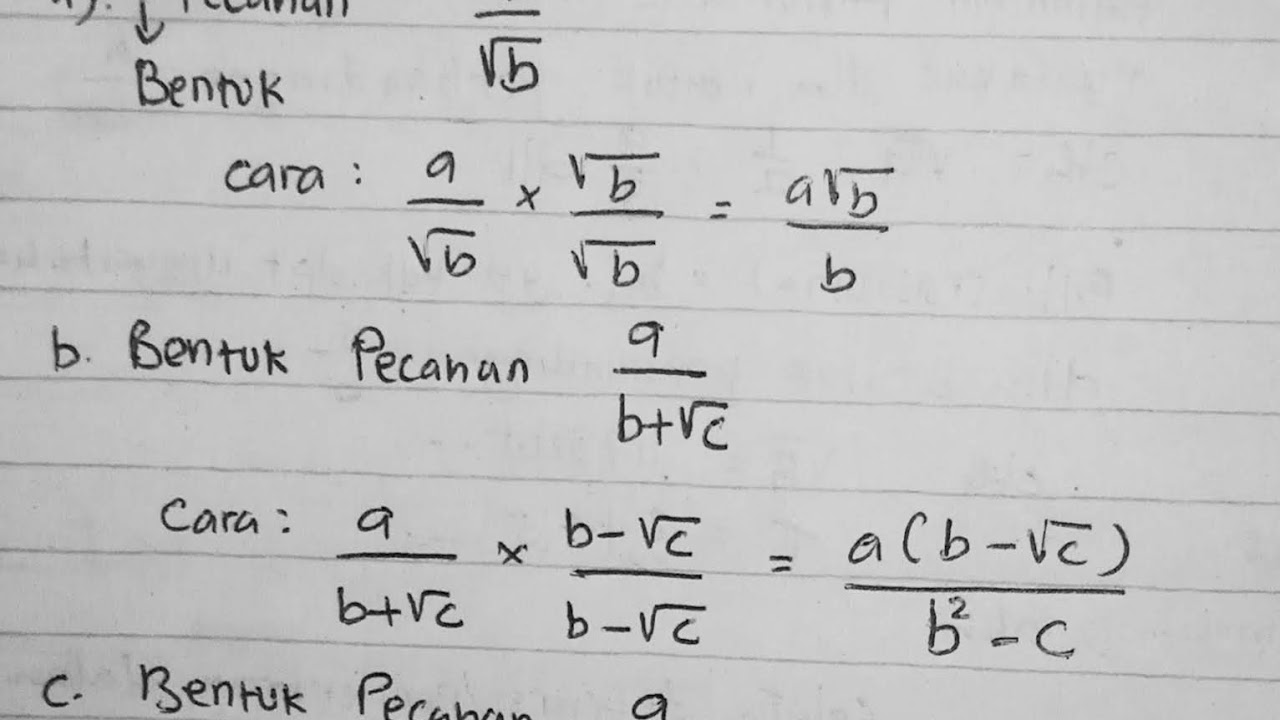 a). Pecahan a/√b
Bentuk
cara : a/√b × √b/√b = a√b/b
b. Bentuk Pecahan a/b+√c
Cara : a/b+√c × b-√c/b-√c = a(b-√c)/b²-c
c. Bentuk Pecahan a